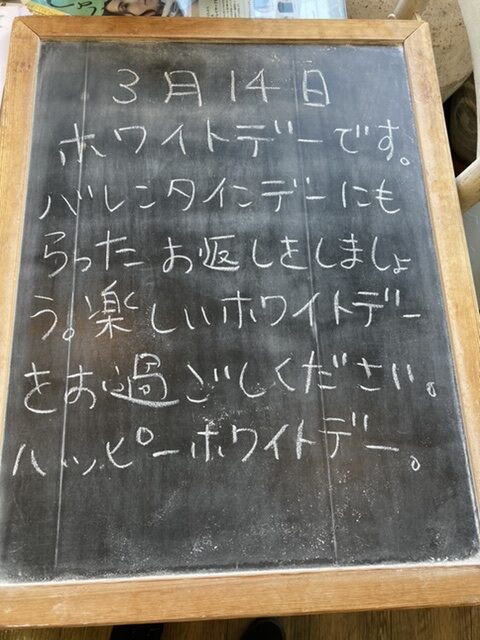 ３月１４日
ホワイトデーです。
バレンタインデーにも
らったお返しをしましょ
う。楽しいホワイトデー
をお過ごしください。
ハッピーホワイトデー。